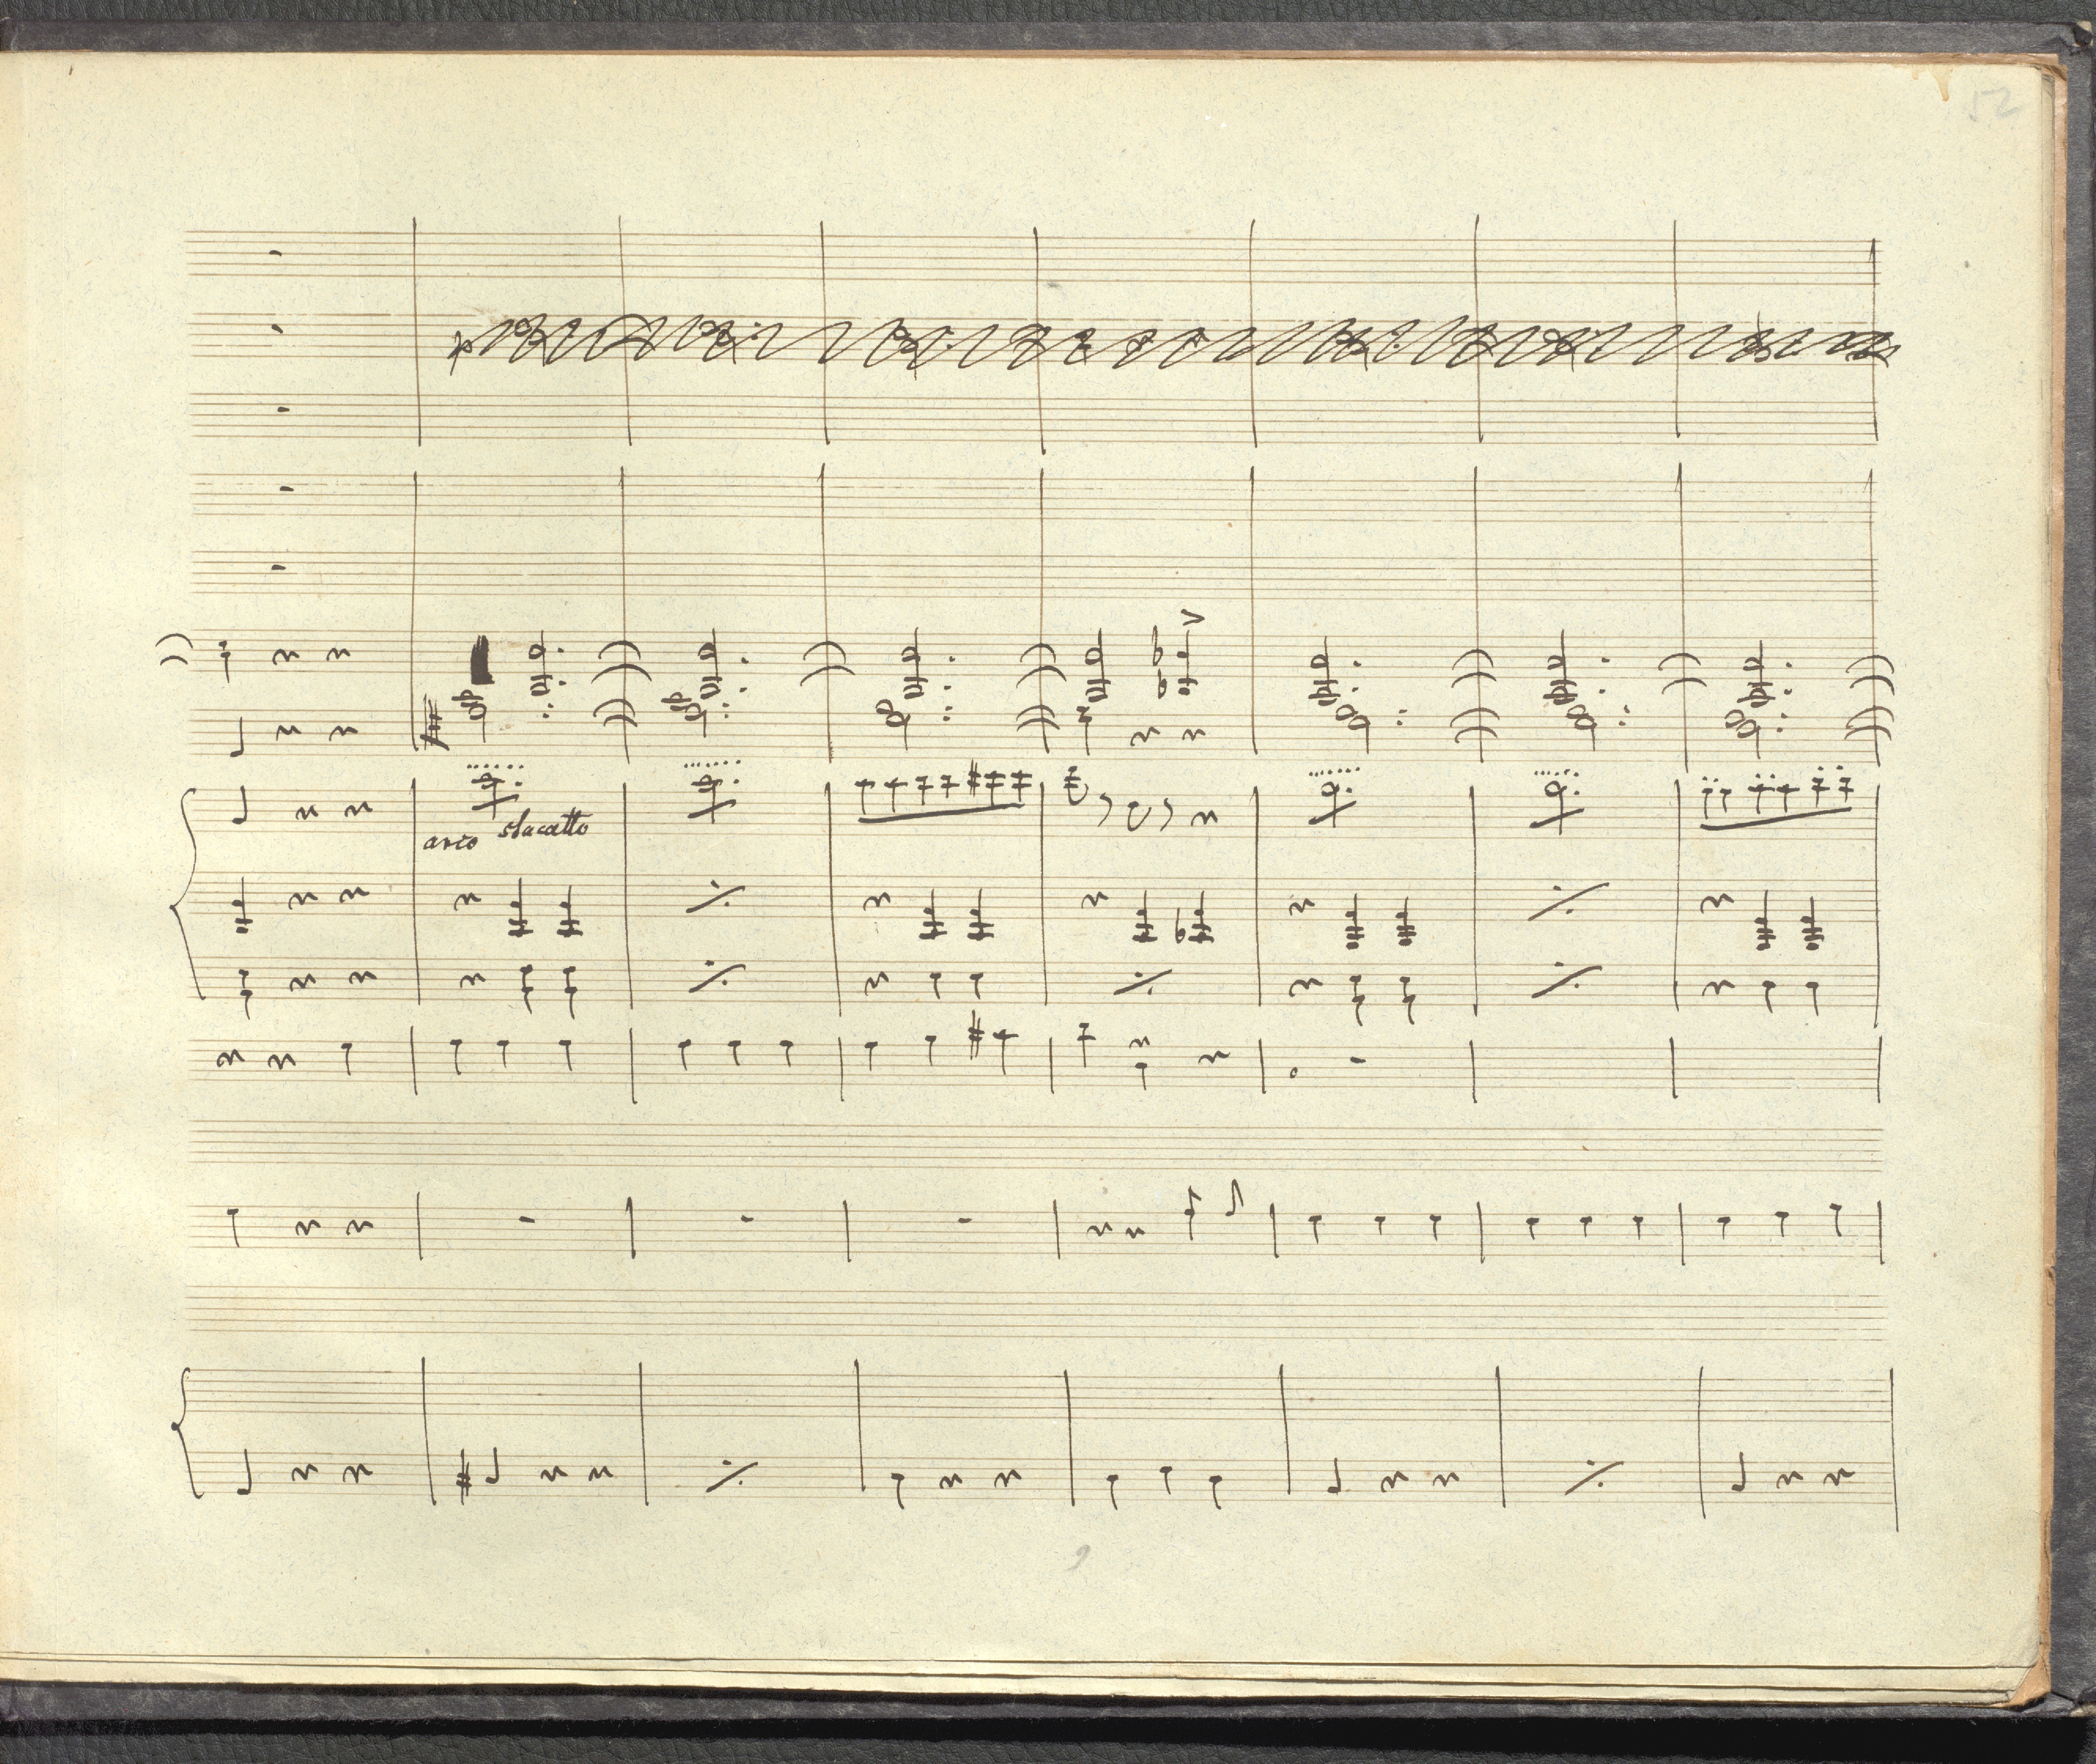 52
arco stacatto